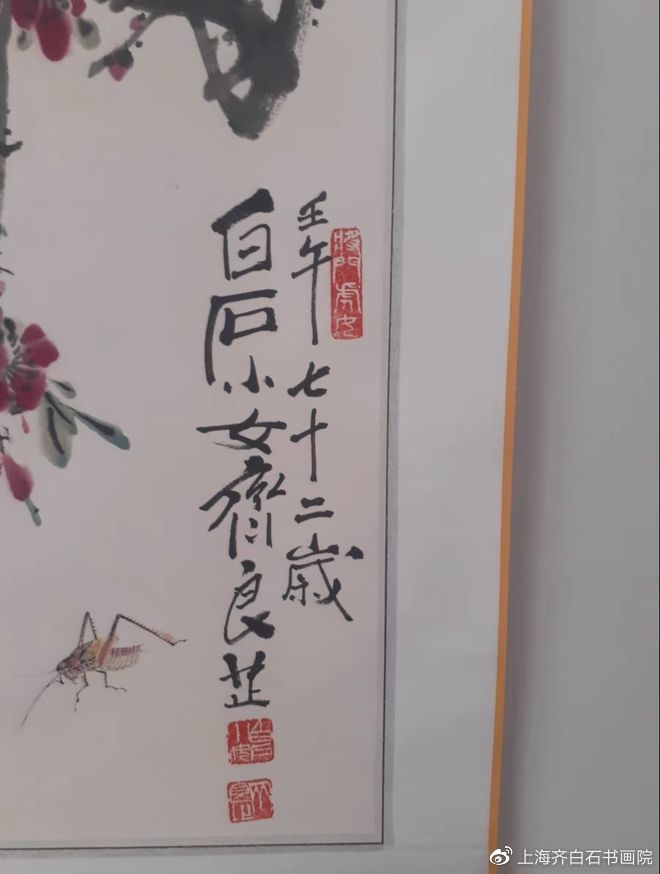 壬午七十二歲
將門虎女
白石小女齊良芷
上海齐白石书画院